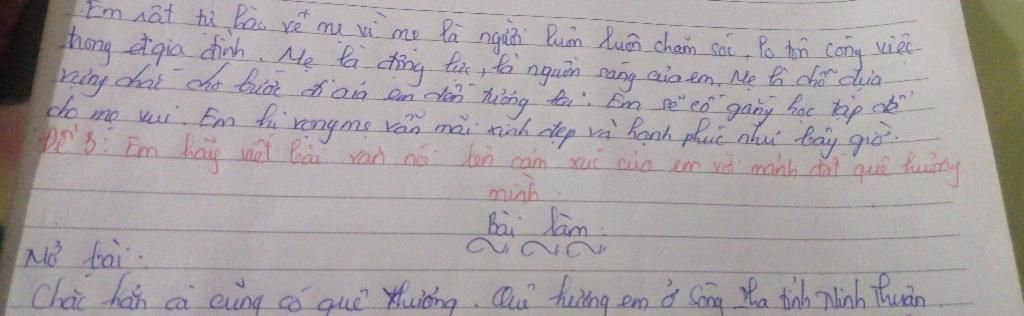 Em rất tự hào về mẹ vì mẹ là người luôn luôn chăm sóc, lo tôn công việc
trong đ gia đình. Mẹ là động lực, là nguồn sáng của em. Mẹ là chỗ dựa
vựng chắc cho bước đi của em đến tương lai. Em sẽ cố gắng học tập để
cho mẹ vui. Em hi vong mẹ vẫn mãi xinh đẹp và hạnh phúc như bây giờ.
Đề 3: Em hãy viết bài văn nói lên cảm xúc của em với mảnh đất quê hương
mình.
Bài làm:
Mở bài:
Chắc hẳn ai cũng có quê hương. Quê hương em ở Sông Pha tỉnh Ninh Thuận.